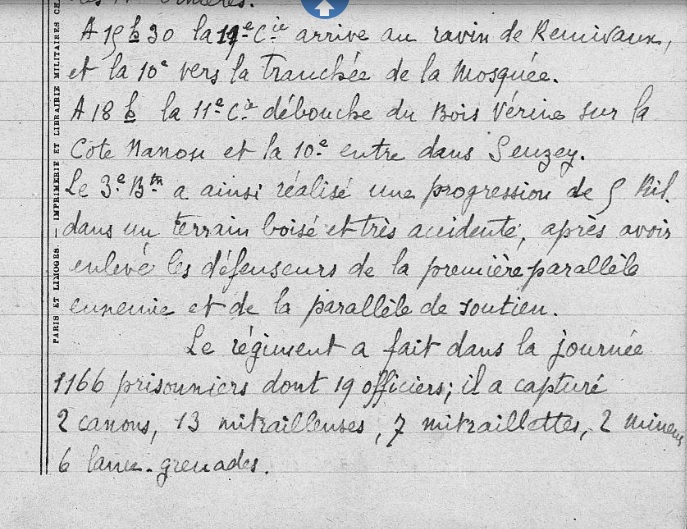 A 15 h 30 la 11e Cie arrive au ravin de Renivaux,
et la 10e vers la Tranchée de la Mosquée.
A 18 h la 11e Cie débouche du Bois Vérine sur la
Cote Nanou et la 10e entre dans Seuzey.
Le 3e Btn a ainsi réalisé une progression de 5 Kil.
dans un terrain boisé et très accidenté, après avoir
enlevé les défenseurs de la première parallèle
ennemie et de la parallèle de soutien.
Le régiment a fait dans la journée
1166 prisonniers dont 19 officiers; il a capturé
2 canons, 13 mitrailleuses, 7 mitraillettes, 2 minen
6 lance-grenades.
PARIS ET LIMOGES. — IMPRIMERIE ET LIBRAIRIE MILITAIRES